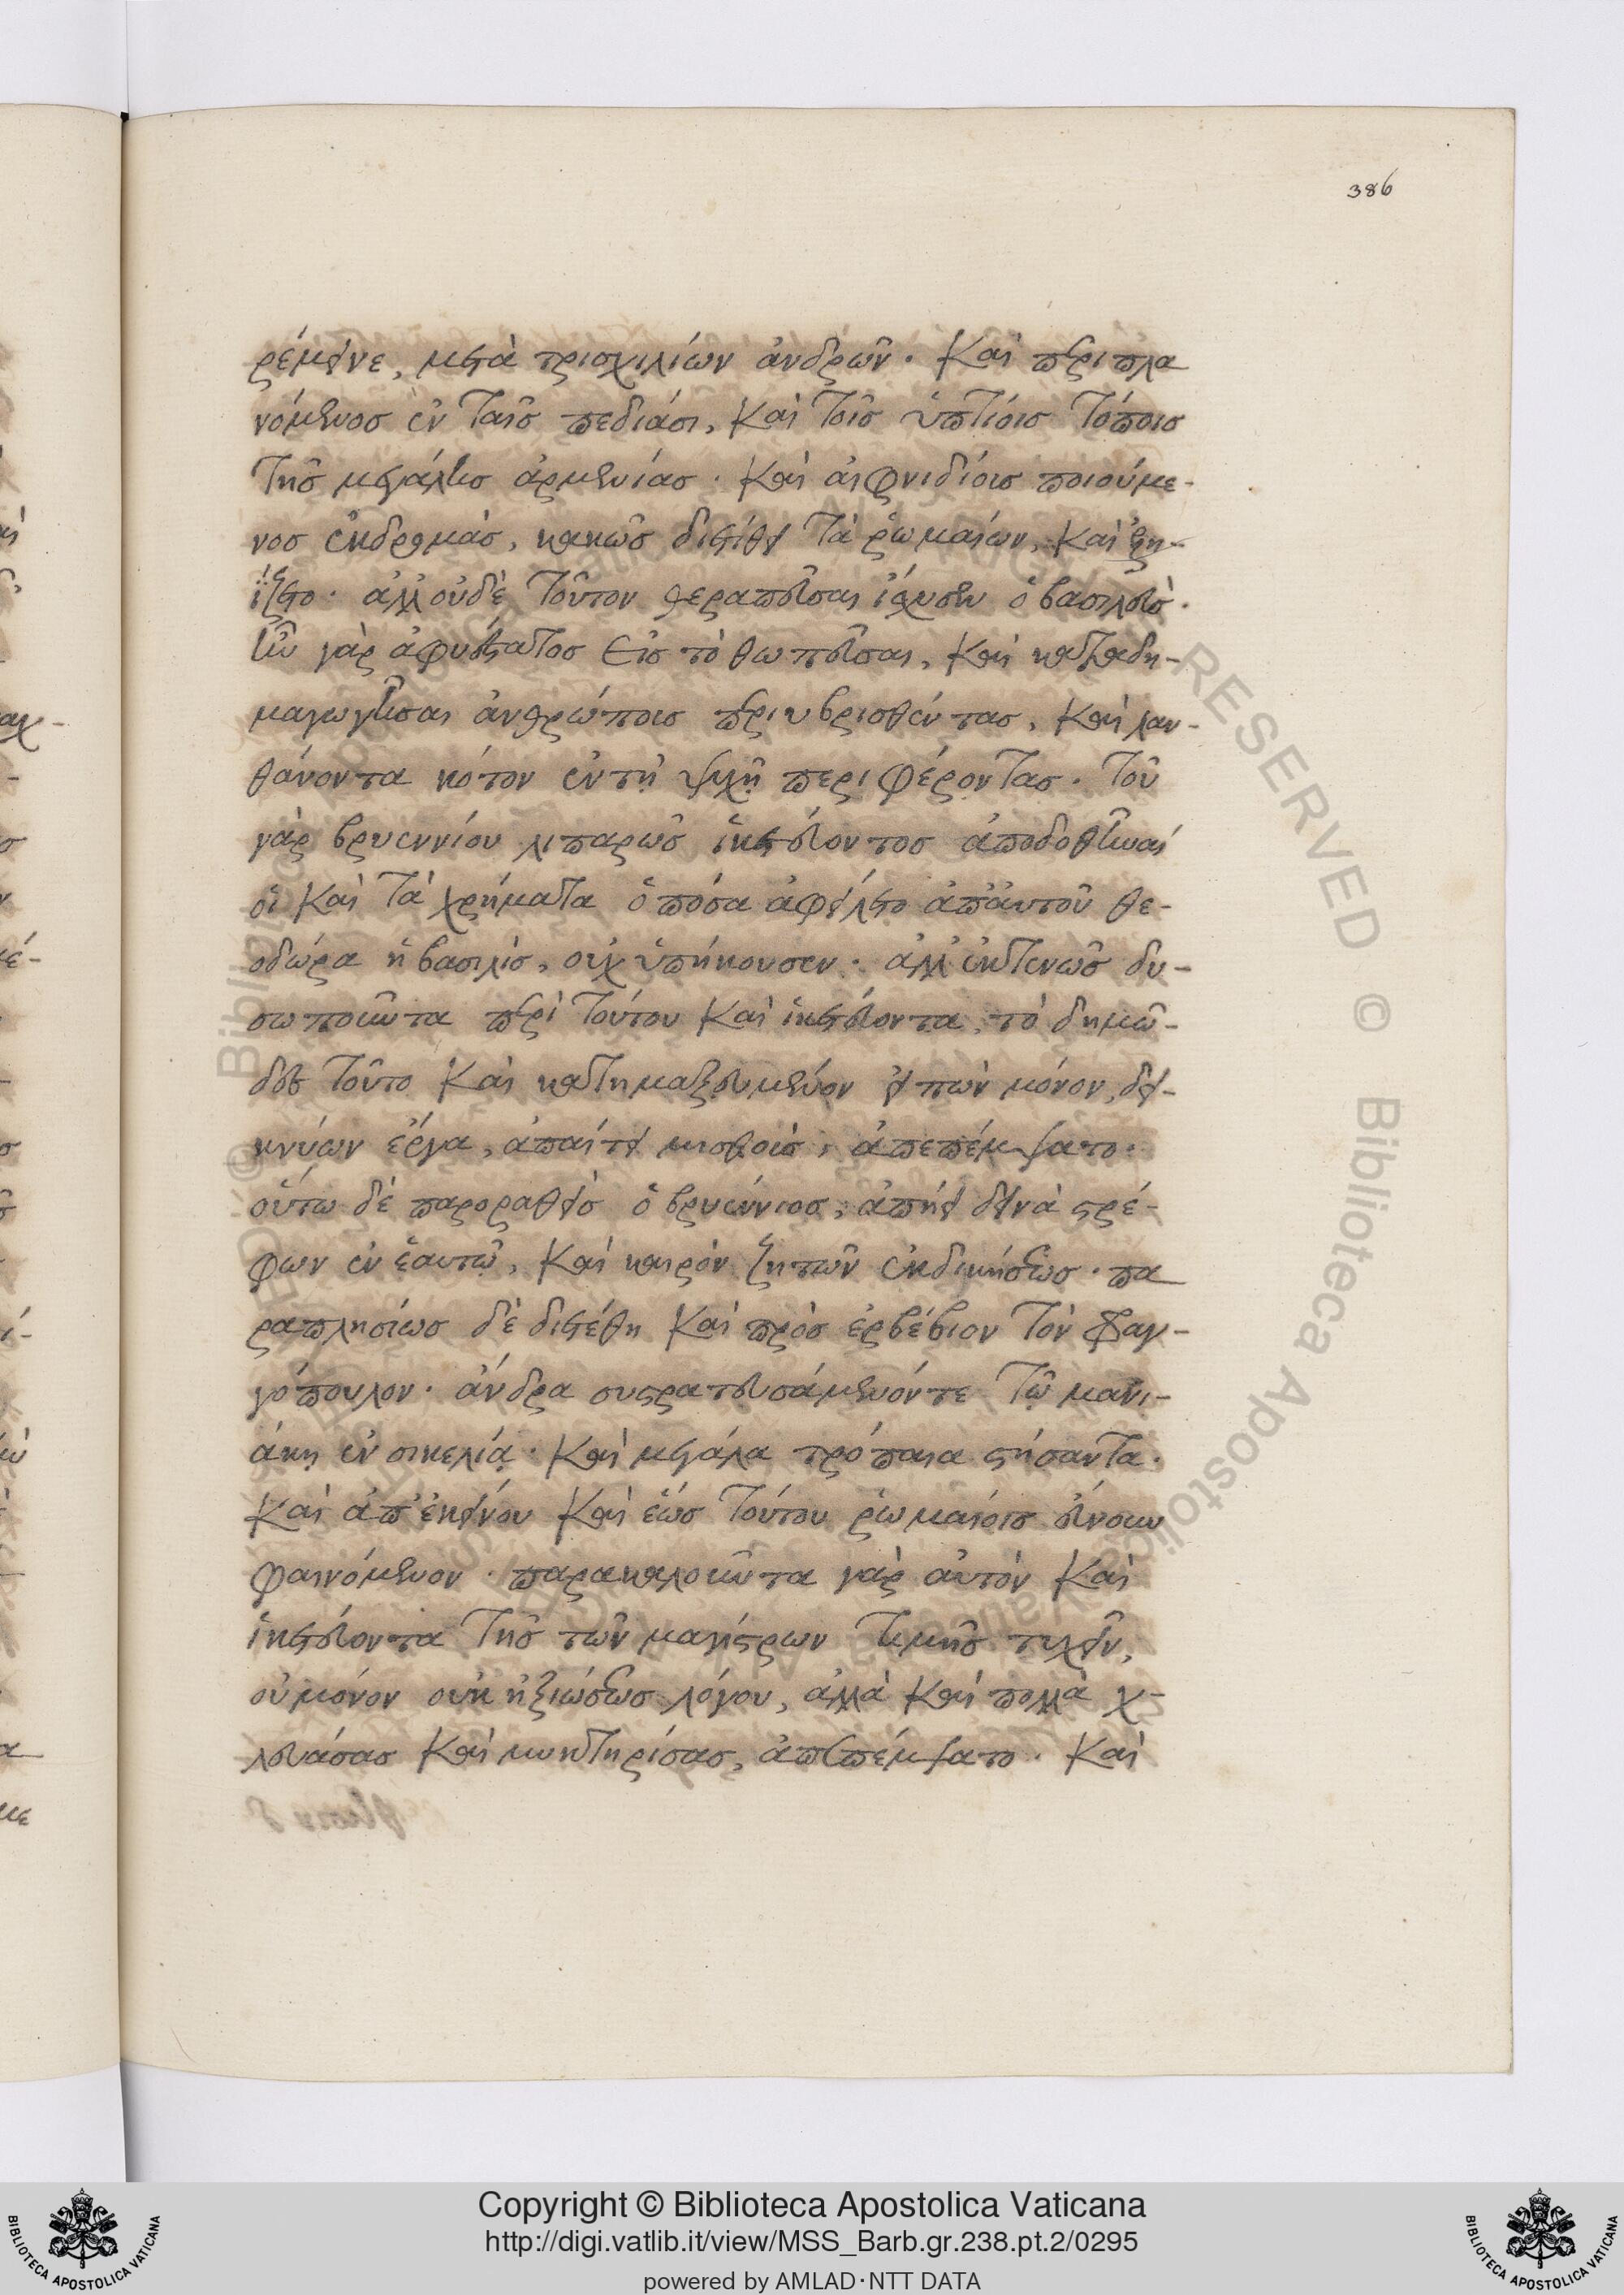 386
ρέμεινε, μετὰ τρισχιλίων ἀνδρῶν. καὶ περιπλα
νόμενος ἐν ταῖς πεδιάσι, καὶ τοῖς ὑπτίοις τόποις
τῆς μεγάλης ἀρμενίας. καὶ αἰφνιδίοις ποιούμε-
νος ἐκδρομὰς, κακῶς διετίθει τὰ ῥωμαίων, καὶ
ἀλλ' οὐδὲ τοῦτον θεραπεῦσαι ἴσχυσεν ὁ βασιλεὺς.
ἦν γὰρ ἀφυέστατος εἰς τὸ θωπεῦσαι, καὶ καταδη-
μαγωγῆσαι ἀνθρώποις περιυβρισθέντας, καὶ λαν-
θάνοντα κότον ἐν τῇ ψυχῇ περιφέροντας. τοῦ
γὰρ βρυεννίου λιπαρῶς ἱκετεύοντος ἀποδοθῆναί
οἱ καὶ τὰ χρήματα ὁπόσα ἀφείλετο ἀπ' αὐτοῦ θε-
οδώρα ἡ βασιλὶς, οὐχ ὑπήκουσεν. ἀλλ' ἐκτενῶς δυ-
σωποῦντα περὶ τούτου καὶ ἱκετεύοντα, τὸ δημῶ-
δες τοῦτο καὶ κατημαξευμένον εἰπὼν μόνον, δει-
κνύων ἔργα, ἀπαίτει μισθοὺς, ἀπεπέμψατο.
οὕτω δὲ παροραθεὶς ὁ βρυέννιος, ἀπῄει δεινὰ στρέ-
φων ἐν ἑαυτῷ, καὶ καιρὸν ζητῶν ἐκδικήσεως. πα
ραπλησίως δὲ διετέθη καὶ πρὸς ἐρβέβιον τὸν φραγ-
γόπουλον. ἄνδρα συστρατευσάμενόν τε τῷ μανι-
άκῃ ἐν σικελίᾳ. καὶ μεγάλα τρόπαια στήσαντα.
καὶ ἀπ' ἐκείνου καὶ ἕως τούτου ῥωμαίοις εὔνουν
φαινόμενον. παρακαλοῦντα γὰρ αὐτὸν καὶ
ἱκετεύοντα τῆς τῶν μαγίστρων τιμῆς τυχεῖν,
οὐ μόνον οὐκ ἠξιώσεως λόγου, ἀλλὰ καὶ πολλὰ χ-
λευάσας καὶ μυκτηρίσας, ἀπεπέμψατο. καὶ
Copyright © Biblioteca Apostolica Vaticana
http://digi.vatlib.it/view/MSS_Barb.gr.238.pt.2/0295
powered by AMLAD·NTT DATA
BIBLIOTECA APOSTOLICA VATICANA
BIBLIOTECA APOSTOLICA VATICANA